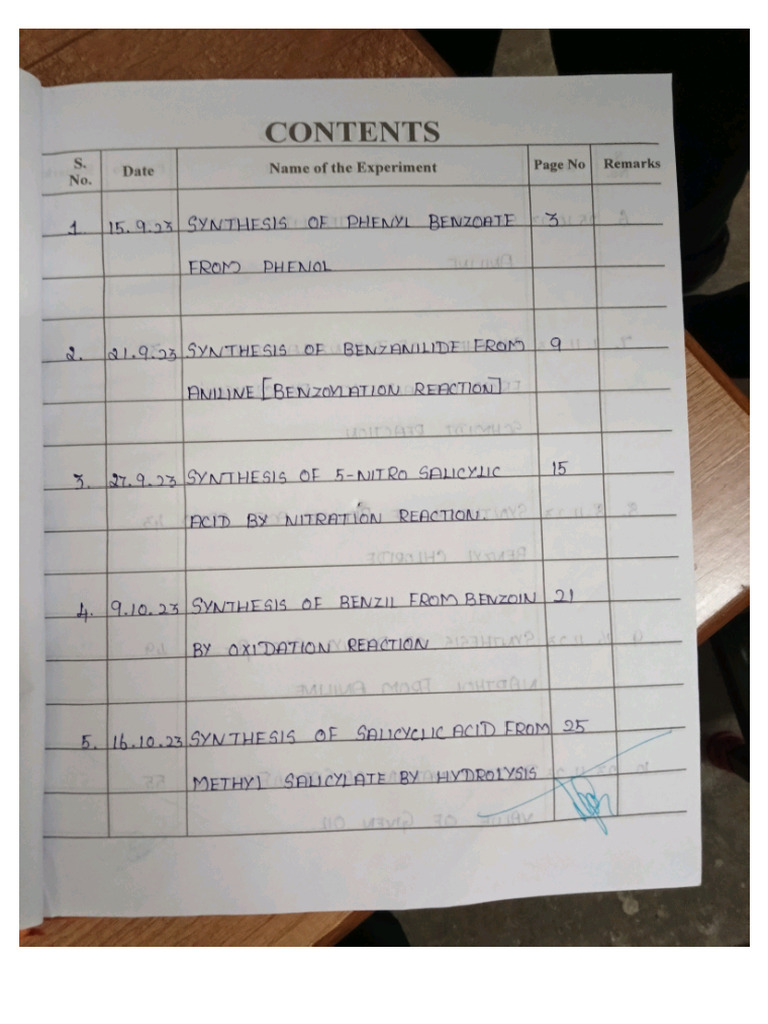 CONTENTS
S. No. Date Name of the Experiment Page No Remarks
1. 15.9.23 SYNTHESIS OF PHENYL BENZOATE 3
FROM PHENOL
2. 21.9.23 SYNTHESIS OF BENZANILIDE FROM 9
ANILINE [BENZOYLATION REACTION]
3. 27.9.23 SYNTHESIS OF 5-NITRO SALICYLIC 15
ACID BY NITRATION REACTION.
4. 9.10.23 SYNTHESIS OF BENZIL FROM BENZOIN 21
BY OXIDATION REACTION
5. 16.10.23 SYNTHESIS OF SALICYCLIC ACID FROM 25
METHYL SALICYLATE BY HYDROLYSIS